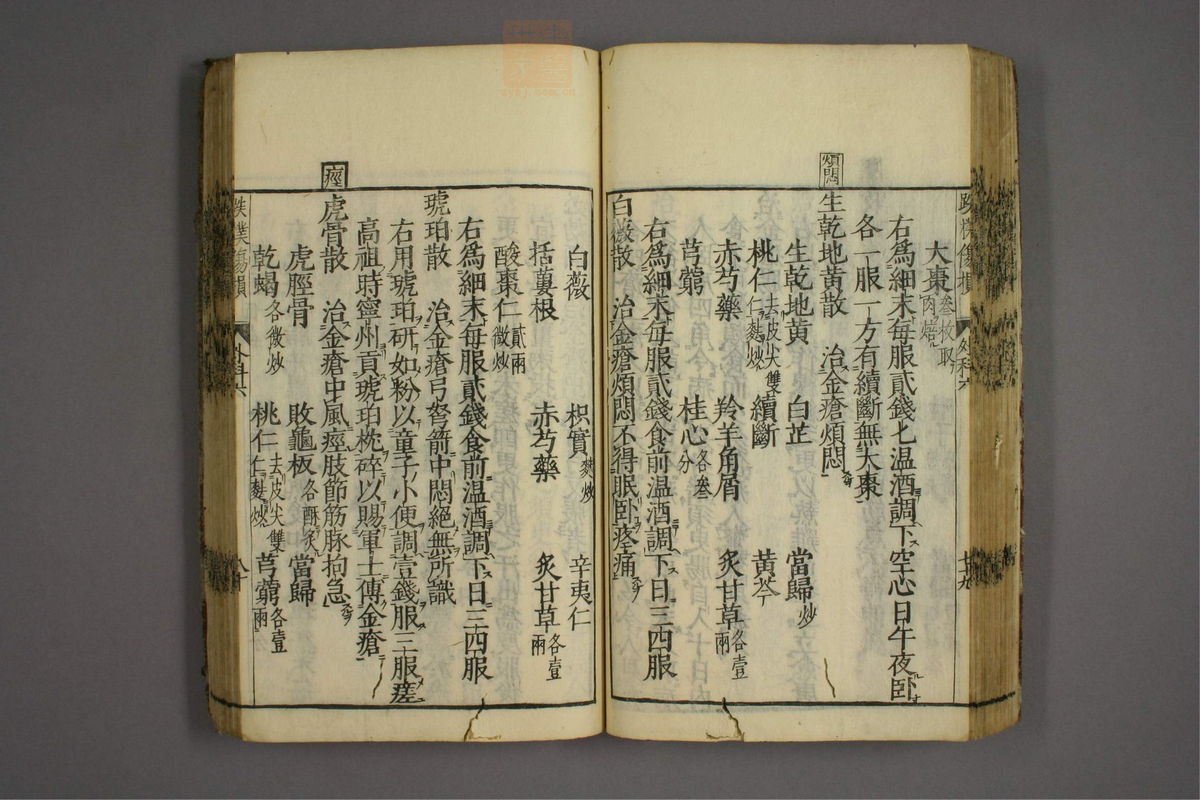 大棗叁枚取肉焙
右爲細末每服貳錢匕温酒調下空心日午夜卧
各一服一方有續斷無大棗
煩悶
生乾地黄散　治金瘡煩悶
生乾地黄　白芷　當歸炒
桃仁去皮尖雙仁麩炒　續斷　黄芩
赤芍藥　羚羊角屑　炙甘草各壹兩
芎藭　桂心各叁分
右爲細末每服貳錢食前温酒調下日三四服
白薇散　治金瘡煩悶不得眠卧疼痛
白薇　枳實麩炒　辛夷仁
括蔞根　赤芍藥　炙甘草各壹兩
酸棗仁貳兩微炒
右爲細末每服貳錢食前温酒調下日三四服
琥珀散　治金瘡弓弩箭中悶絕無所識
右用琥珀研如粉以童子小便調壹錢服三服瘥
高祖時寧州貢琥珀枕碎以賜軍士傅金瘡
痙
虎骨散　治金瘡中風痙肢節筋脉拘急
虎脛骨　敗龜板各酥炙　當歸
乾蝎各微炒　桃仁去皮尖雙仁麩炒　芎藭各壹兩
跌撲傷損　外科六　八十